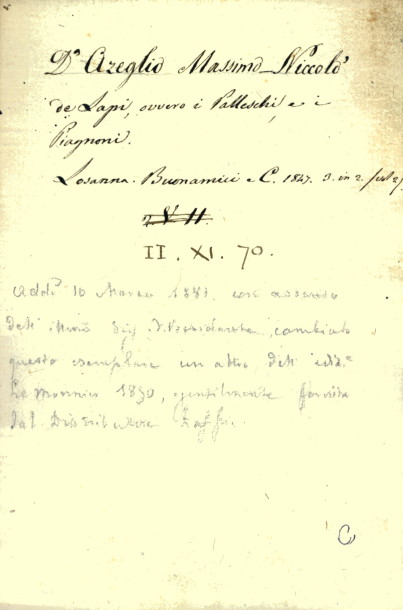 D' Azeglio Massimo_Niccolò
de Lapi, ovvero i Palleschi, e i
Piagnoni.
Losanna. Buonamici e C. 1847. 3. in 2.
II. XI. 70.
Addì 10 Marzo 1881, con assenso
dell' cambiato
questo esemplare un altro dell' ediz.e
Le Monnier 1850, gentilmente fornito
dal Distributore
C